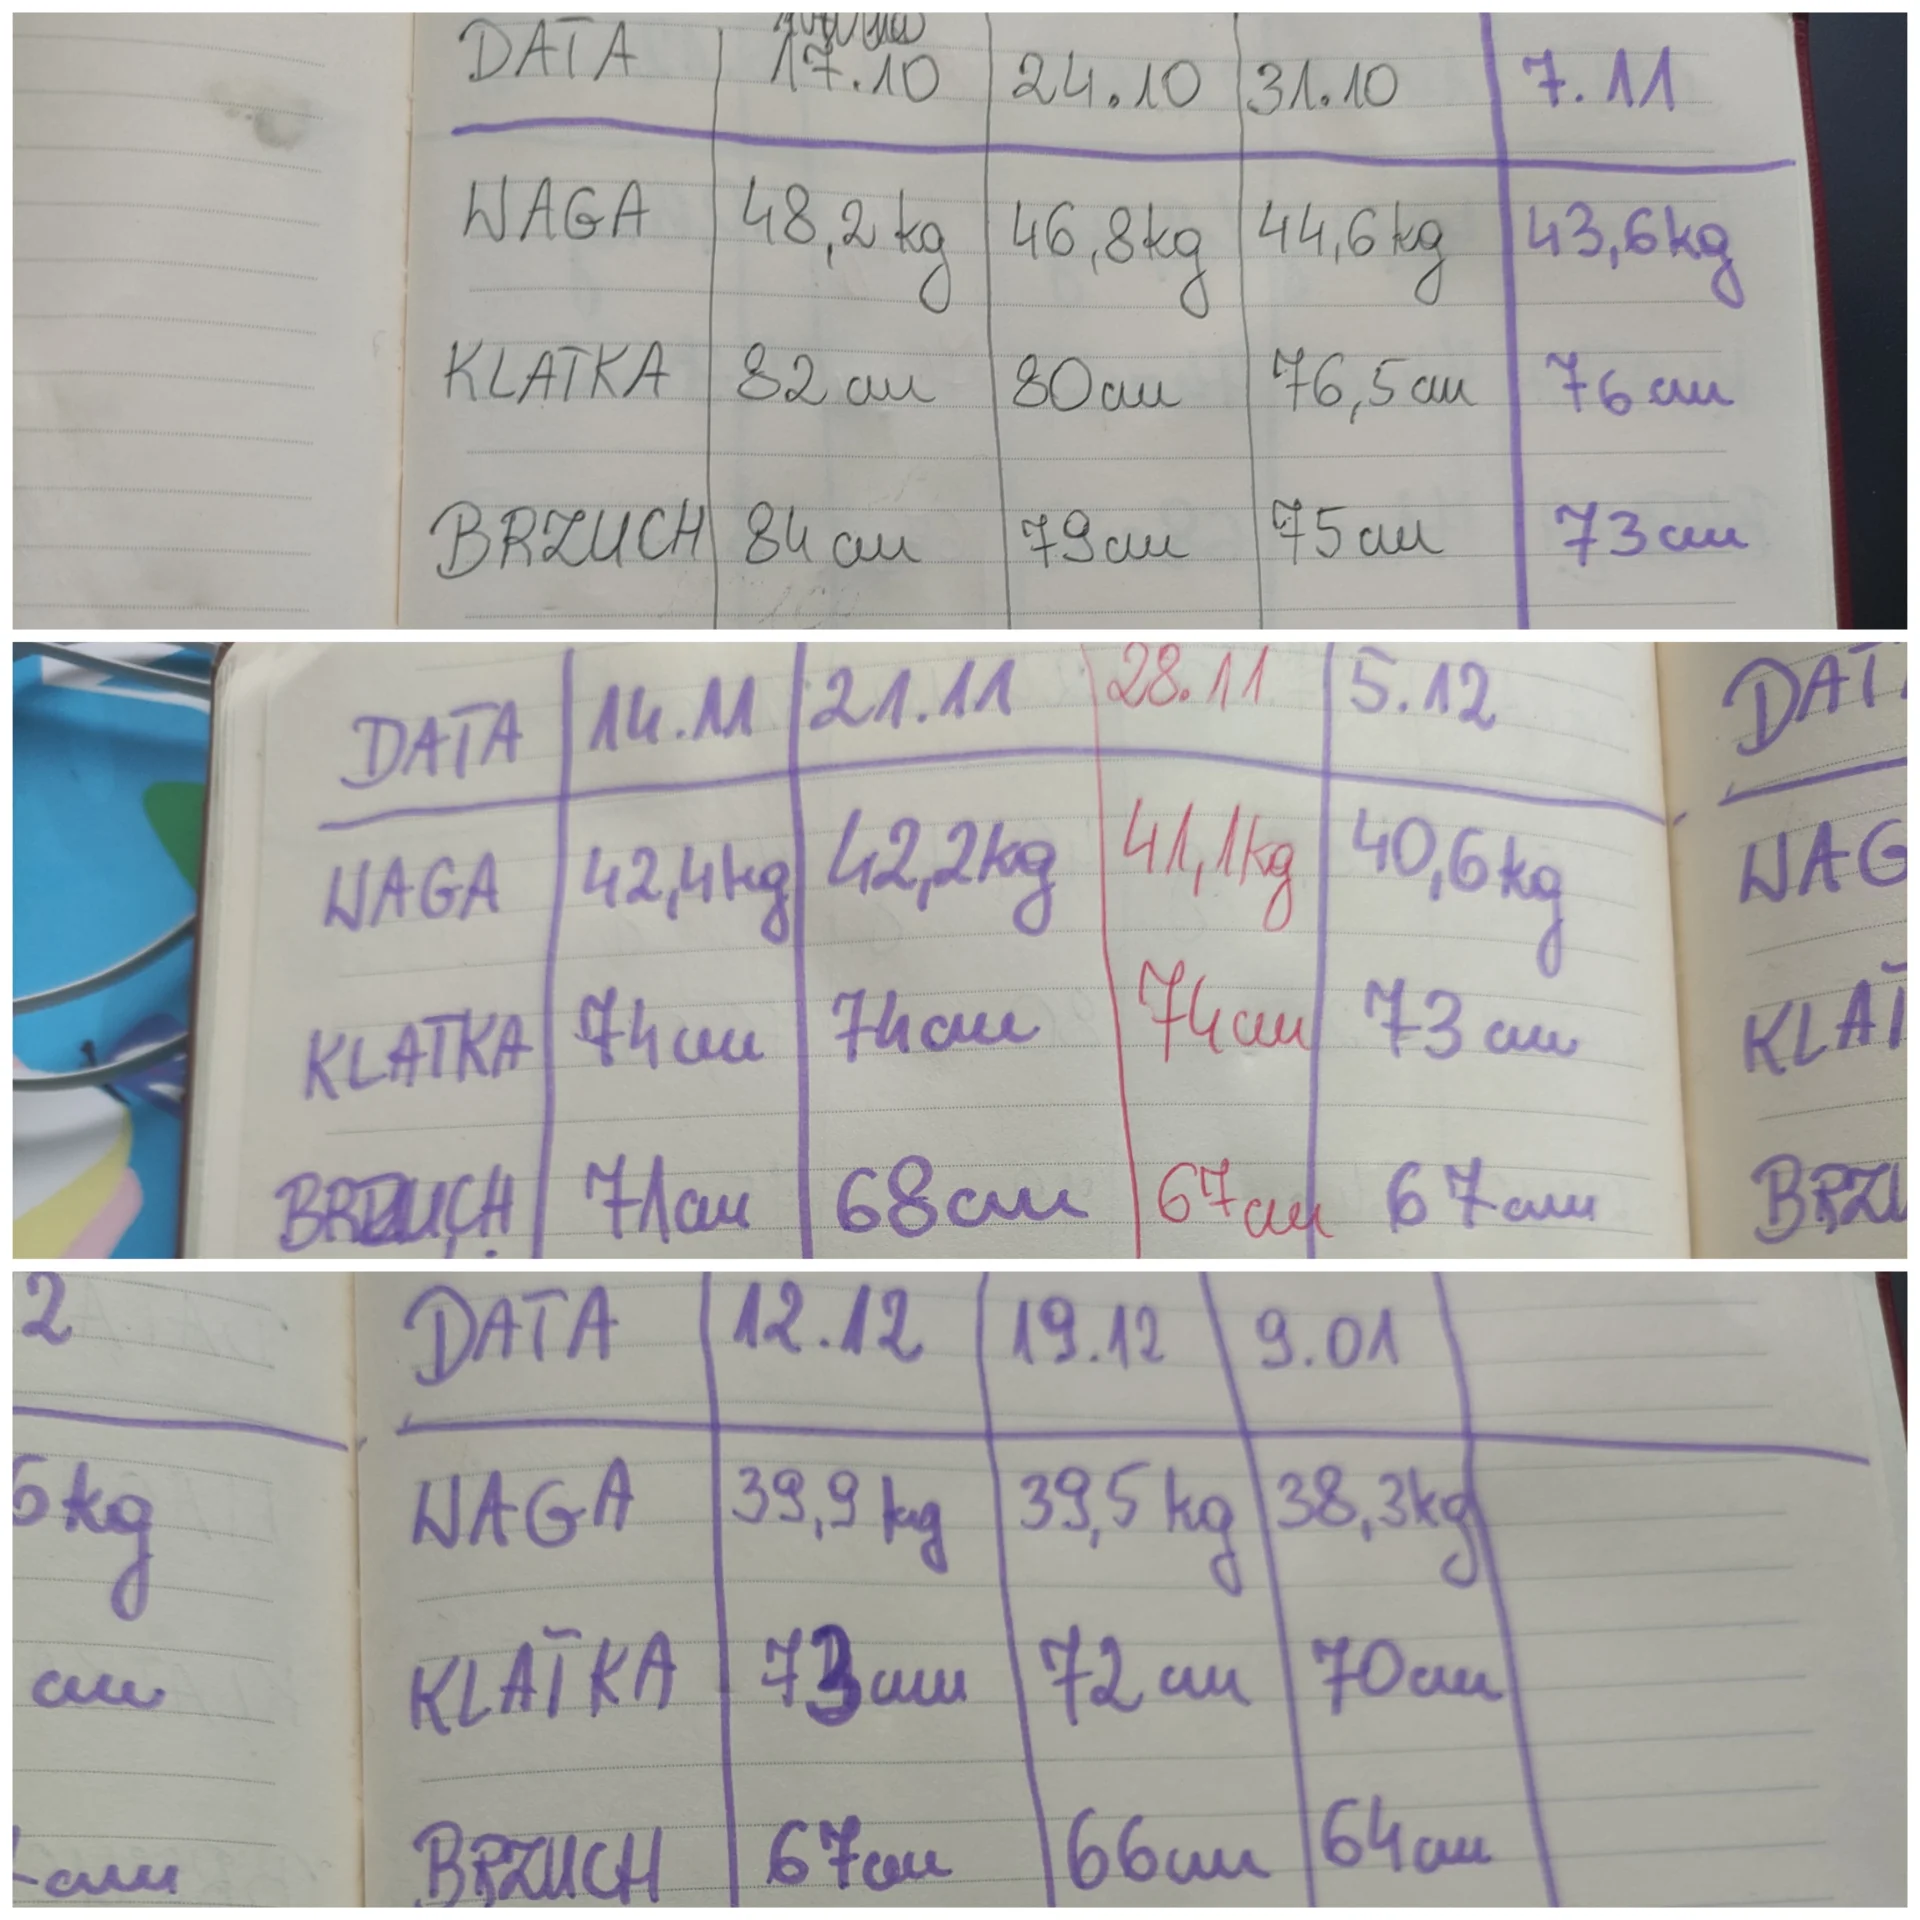 DATA 17.10 24.10 31.10 7.11
WAGA 48,2 kg 46,8kg 44,6 kg 43,6kg
KLATKA 82 cm 80cm 76,5cm 76 cm
BRZUCH 84 cm 79cm 75cm 73cm
DATA 14.11 21.11 28.11 5.12
WAGA 42,4kg 42,2kg 41,1kg 40,6kg
KLATKA 74cm 74cm 74cm 73 cm
BRZUCH 71cm 68cm 67cm 67cm
DAT
WAG
KLAT
BRZU
2
6kg
cm
cm
DATA 12.12 19.12 9.01
WAGA 39,9 kg 39,5 kg 38,3kg
KLATKA 73cm 72 cm 70cm
BRZUCH 67cm 66cm 64cm